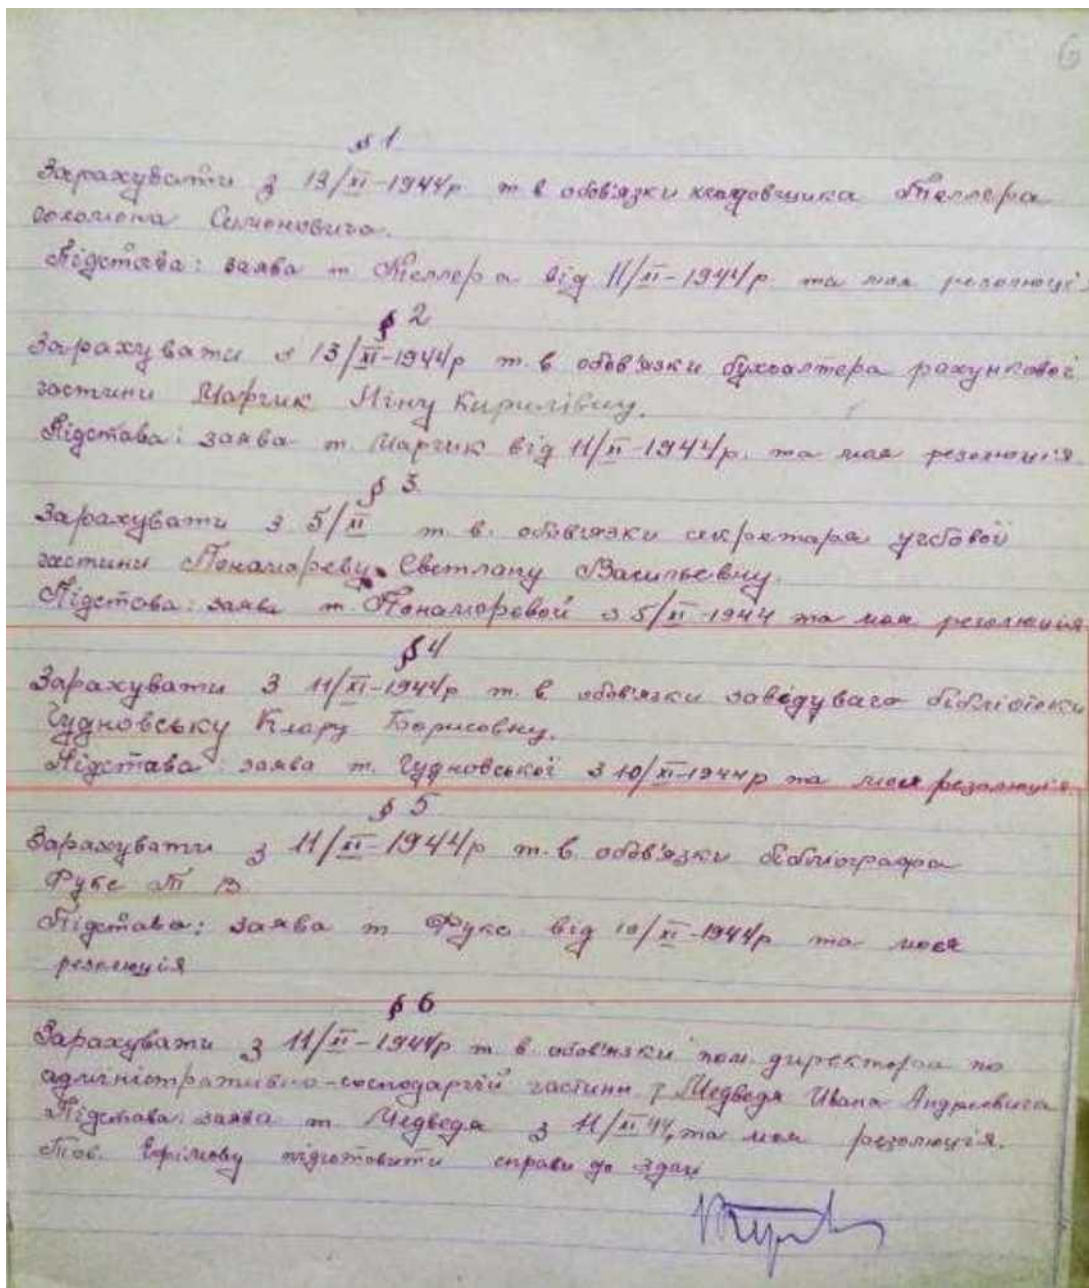 6
§ 1
Зарахувати з 13/XI-1944р т. в обов'язки кладовщика Теллера
Соломона Симоновича.
Підстава: заява т. Теллера від 11/XI-1944р. та моя резолюці
§ 2
Зарахувати з 13/XI-1944р т. в обов'язки бухгалтера рахункової
частини Марчик Ніну Кирилівну.
Підстава: заява т. Марчик від 11/XI-1944р. та моя резолюція
§ 3.
Зарахувати з 5/XI т. в. обов'язки секретара учбової
частини Понамореву Светлану Васильевну.
Підстава: заява т. Понаморовой з 5/XI-1944 та моя резолюція
§ 4
Зарахувати з 11/XI-1944р т. в обов'язки заведувача бібліотеки
Чудновську Клару Борисовну.
Підстава: заява т. Чудновської з 10/XI-1944р та моя резолюція
§ 5
Зарахувати з 11/XI-1944р т. в. обов'язки бібліографа
Фукс М В
Підстава: заява т Фукс від 10/XI-1944р та моя
резолюція
§ 6
Зарахувати з 11/XI-1944р т. в. обов'язки пом. директора по
адміністративно-господарчій частини Медведя Ивана Андреевича
Підстава: заява т. Медведя з 11/XI 44, та моя резолюція.
Тов. Ефімову підготовити справи до здачі